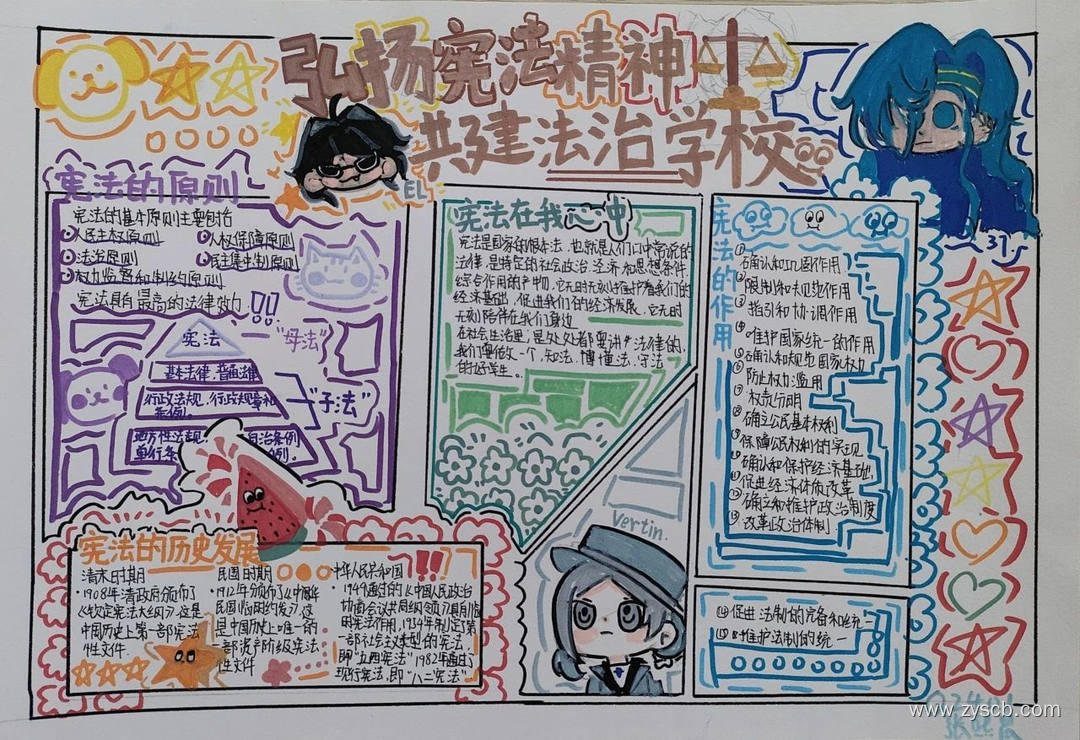 弘扬宪法精神
共建法治学校
EL
37
宪法的原则
宪法的基本原则主要包括
人民主权原则 人权保障原则
法治原则 民主集中制原则
权力监督和制约原则
宪法具有最高的法律效力!!
宪法
"母法"
基本法律,普通法律
行政法规,行政规章
条例。
"子法"
地方性法规 自治条例
单行条 例。
宪法在我心中
宪法是国家的根本法,也就是人们口中常说的
法律,是特定的社会政治经济和思想条件
综合作用的产物,它无时无刻维护着我们的
经济基础,促进我们的经济发展,它无时
无刻陪伴在我们身边
在社会生活里,是处处都要讲"法律"的,
我们要做一个,知法,懂法,守法
的好学生。
宪法的作用
①确认和巩固作用
②限制和规范作用
③指引和协调作用
④维护国家统一的作用
⑤确认和规范国家权力
⑥防止权力滥用
⑦权责分明
⑧确立公民基本权利
⑨保障公民权利的实现
确认和保护经济基础
促进经济体质改革
确立和维护政治制度
改革政治体制
⑭促进法制的完备和统一
⑮维护法制的统一
Vertin.
宪法的历史发展!!!
清末时期
·1908年清政府颁布了
《钦定宪法大纲》,这是
中国历史上第一部宪法
性文件
民国时期
·1912年颁布了《中华
民国临时约法》,这
是中国历史上唯一的
一部资产阶级宪法
性文件
·中华人民共和国
·1949通过的《中国人民政治
协商会议共同纲领》具有临
时宪法作用,1954年制定了第
一部社会主义类型的宪法,
即"五四宪法"1982年通过了
现行宪法,即"八二宪法"
www.zyscb.com